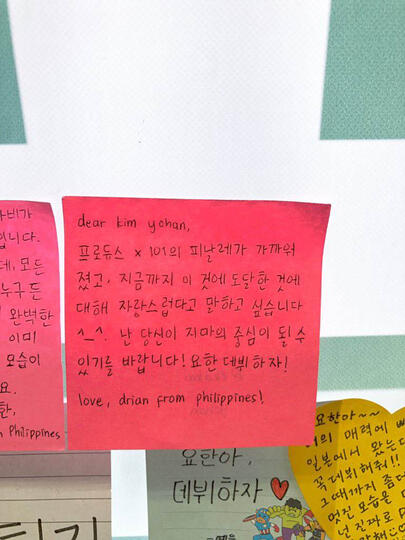 dear kim yohan,
프로듀스 x 101의 피날레가 가까워
졌고, 지금까지 이 것에 도달한 것에
대해 자랑스럽다고 말하고 싶습니다
^_^. 난 당신이 지마의 중심이 될 수
있기를 바랍니다! 요한 데뷔하자!
love, drian from philippines!
비가
입니다.
데, 모든
누구든
완벽한
이미
모습이
요.
한,
Philippines
요한아,
데뷔하자
요한아~~
의 매력에
일본에서 왔는
꼭 데뷔해줘!!
그때까지 좀더
멋진 모습을
넌 진짜로